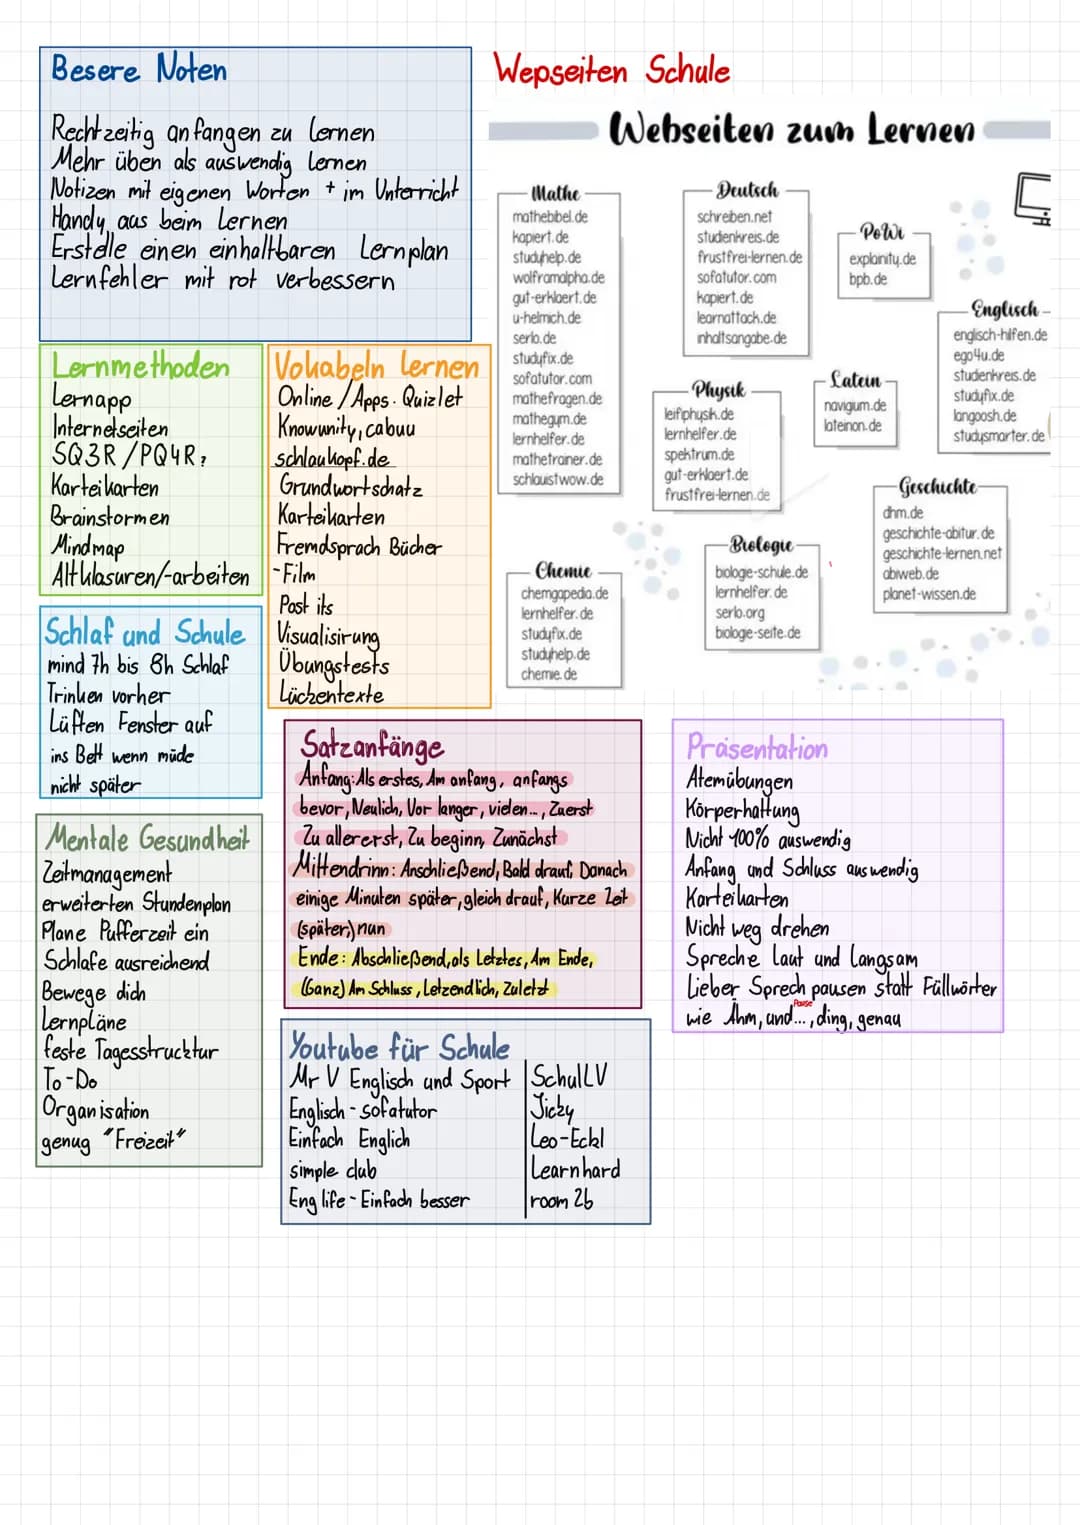 Besere Noten
Rechtzeitig anfangen zu lernen
Mehr üben als auswendig lernen
Notizen mit eigenen Worten + im Unterricht
Handy aus beim Lernen
Erstelle einen einhaltbaren Lernplan
Lernfehler mit rot verbessern
Wepseiten Schule
Webseiten zum Lernen
Mathe
mathebibel.de
kapiert.de
studyhelp.de
wolframalpha.de
gut-erklaert.de
u-helmich.de
serlo.de
studyfix.de
sofatutor.com
mathefragen.de
mathegym.de
lernhelfer.de
mathetrainer.de
schlauistwow.de
Deutsch
schreiben.net
studienkreis.de
frustfrei-lernen.de
sofatutor.com
kapiert.de
learnattack.de
inhaltsangabe.de
PoWi
explainity.de
bpb.de
Englisch
englisch-hilfen.de
ego4u.de
studienkreis.de
studyfix.de
langoosh.de
studysmarter.de
Physik
leifiphysik.de
lernhelfer.de
spektrum.de
gut-erklaert.de
frustfrei-lernen.de
Latein
navigium.de
lateinon.de
Geschichte
dhm.de
geschichte-abitur.de
geschichte-lernen.net
abiweb.de
planet-wissen.de
Chemie
chemgapedia.de
lernhelfer.de
studyfix.de
studyhelp.de
chemie.de
Biologie
biologie-schule.de
lernhelfer.de
serlo.org
biologie-seite.de
Lernmethoden
Lernapp
Internetseiten
SQ3R/PQ4R?
Karteikarten
Brainstormen
Mindmap
Altklasuren/-arbeiten
Vokabeln lernen
Online/Apps. Quizlet
Knowunity, cabuu
schlaukopf.de
Grundwortschatz
Karteikarten
Fremdsprach Bücher
-Film
Post its
Visualisirung
Übungstests
Lückentexte
Schlaf und Schule
mind 7h bis 8h Schlaf
Trinken vorher
Lüften Fenster auf
ins Bett wenn müde
nicht später
Mentale Gesundheit
Zeitmanagement
erweiterten Stundenplan
Plane Pufferzeit ein
Schlafe ausreichend
Bewege dich
Lernpläne
feste Tagesstrucktur
To-Do
Organisation
genug "Freizeit"
Satzanfänge
Anfang: Als erstes, Am anfang, anfangs
bevor, Neulich, Vor langer, vielen..., Zuerst
Zu allererst, Zu beginn, Zunächst
Mittendrinn: Anschließend, Bald drauf, Danach
einige Minuten später, gleich drauf, Kurze Zeit
(später) nun
Ende: Abschließend, als Letztes, Am Ende,
(Ganz) Am Schluss, Letzendlich, Zuletzt
Präsentation
Atemübungen
Körperhaltung
Nicht 100% auswendig
Anfang und Schluss auswendig
Karteikarten
Nicht weg drehen
Spreche laut und langsam
Lieber Sprech pausen statt Füllwörter
Pause
wie Ähm, und..., ding, genau
Youtube für Schule
Mr V Englisch und Sport
Englisch - sofatutor
Einfach Englich
simple club
Eng life - Einfach besser
SchulLV
Jicky
Leo-Eckl
Learnhard
room 2b